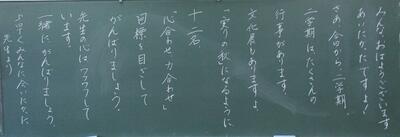 みんな、おはようございます
あいたかったですよ!
さあ、今日から二学期。
二学期は、たくさんの
行事があります。
文化展もありますよ。
「実りの秋」になるように
十二名
「心合わせ、力合わせ」
目標を目ざして
がんばりましょう。
先生の心はワクワクして
います。
一緒に、がんばりましょう。
みんなに会いたかった
先生より